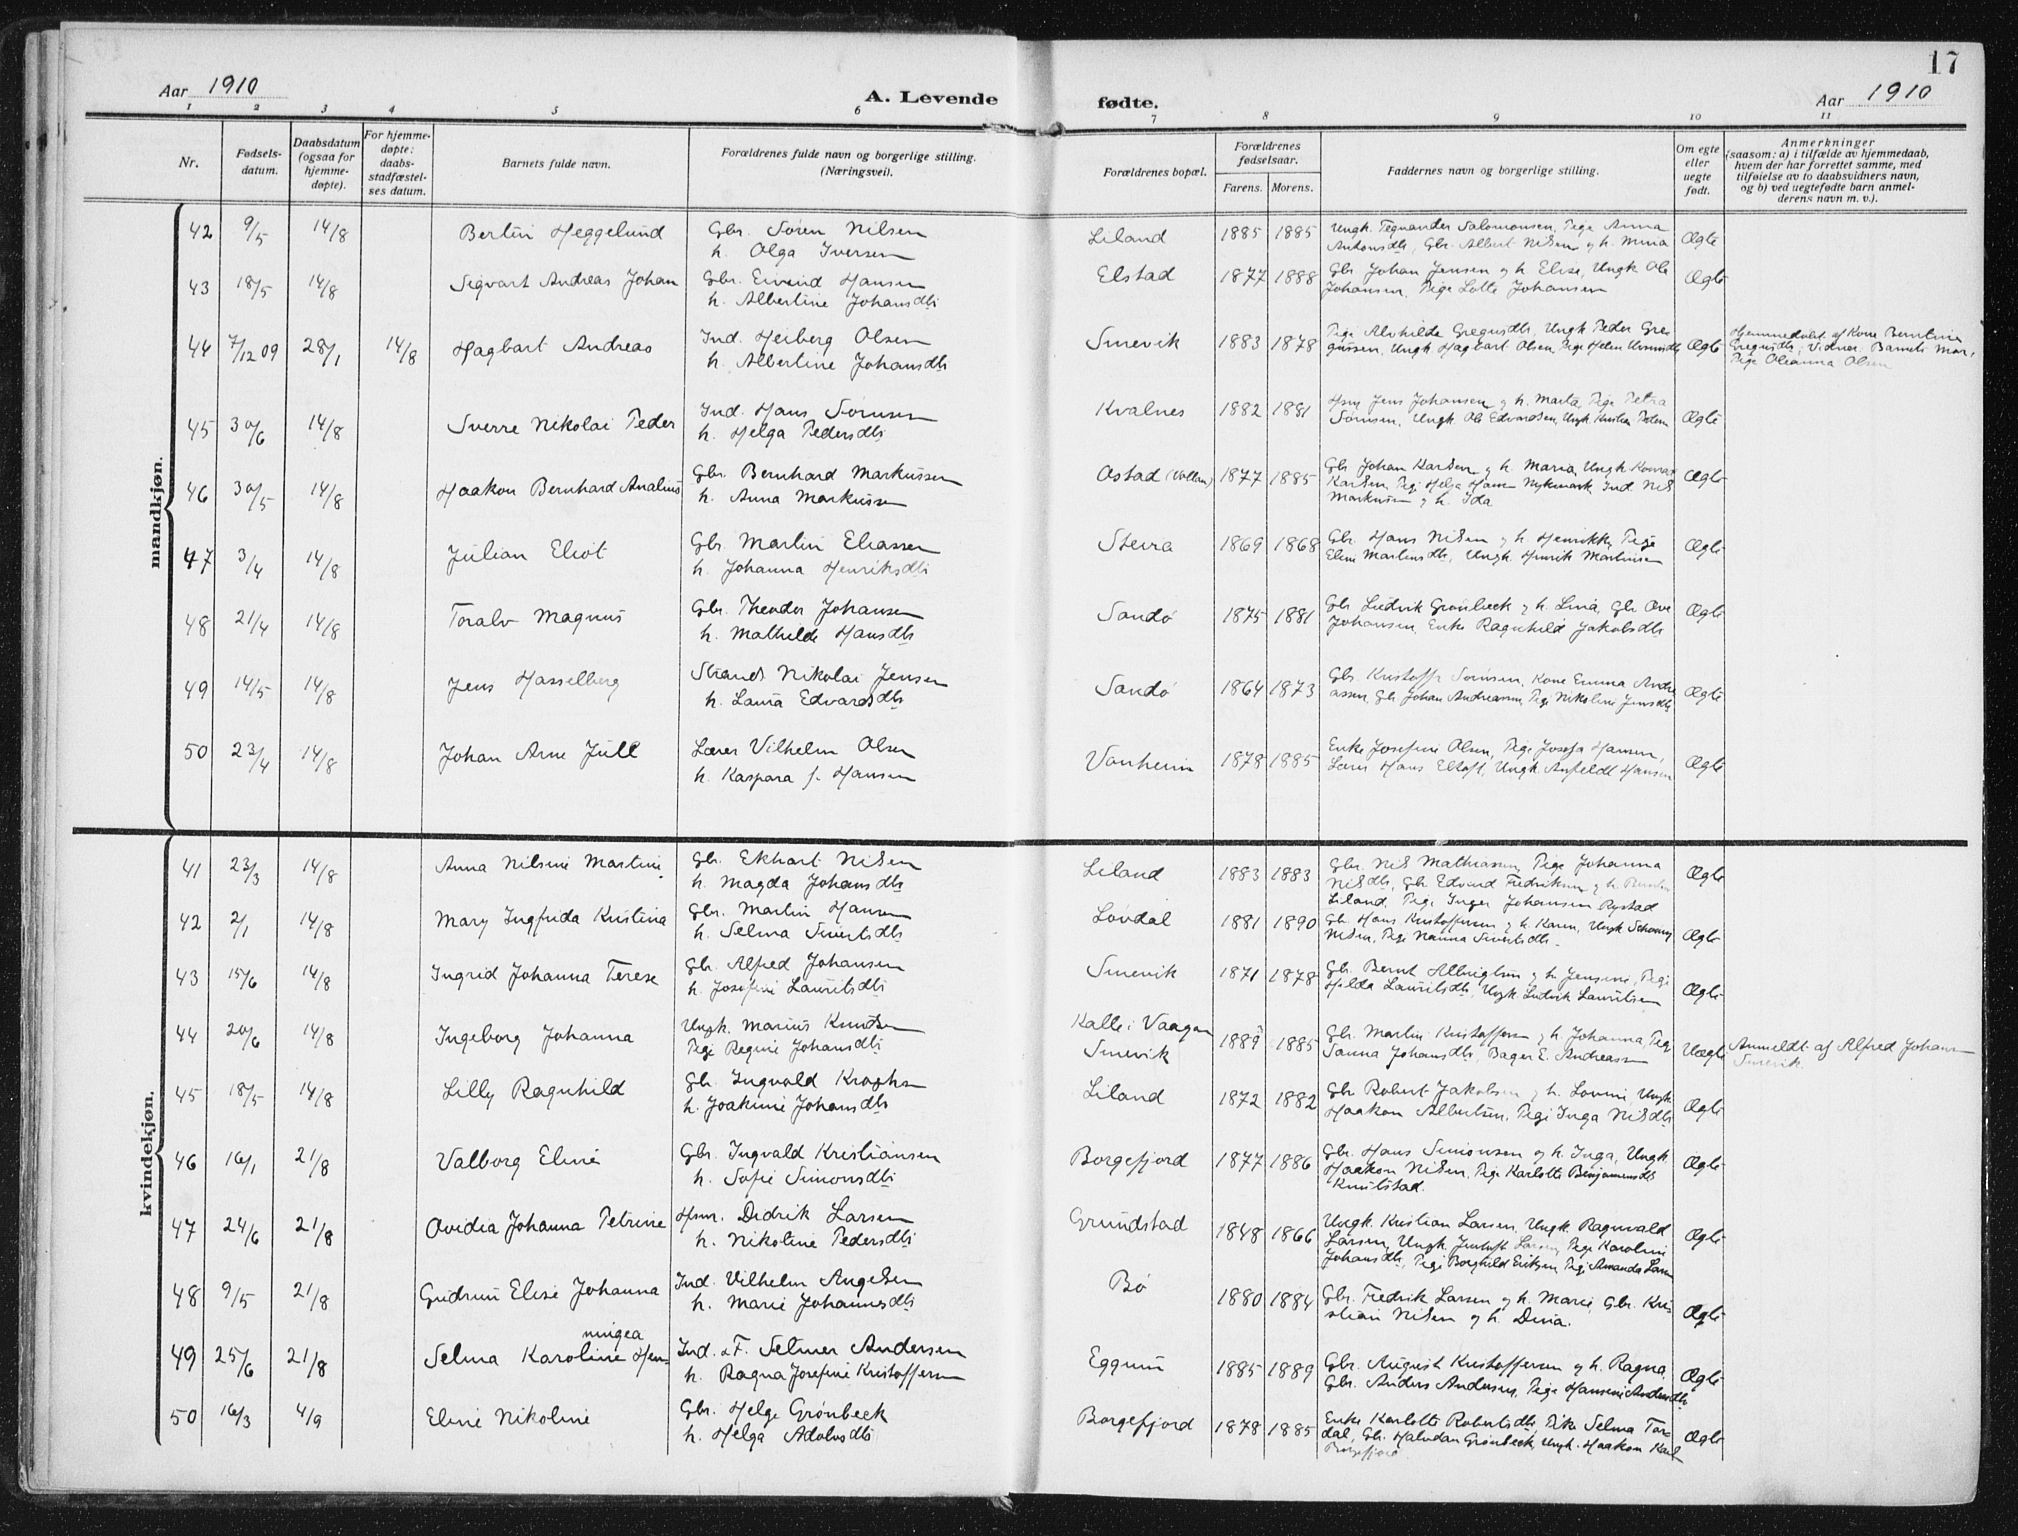 17
Aar 1910
A. Levende fødte.
Aar 1910
1 2 3 4 5 6 7 8 9 10 11
Nr.
Fødsels-
datum.
Daabsdatum
(ogsaa for
hjemme-
døpte).
For hjemme-
døpte:
daabs-
stadfæstel-
ses datum.
Barnets fulde navn.
Forældrenes fulde navn og borgerlige stilling.
(Næringsvei).
Forældrenes bopæl.
Forældrenes
fødselsaar.
Farens. Morens.
Faddernes navn og borgerlige stilling.
Om egte
eller
uegte
født.
Anmerkninger
(saasom: a) i tilfælde av hjemmedaab,
hvem der har forrettet samme, med
tilføielse av to daabsvidners navn,
og b) ved uegtefødte barn anmel-
derens navn m. v.).
mandkjøn.
42 9/5 14/8 Bertin Heggelund Gbr. Sören Nilsen Liland 1885 1885 Ungk. Tegnander Salomonsen, Pige Anna Ægte
h. Olga Iversen Antonsdtr, Gbr. Albert Nilsen og h. Mina
43 18/5 14/8 Sigvart Andreas Johan Gbr. Eivind Hansen Elstad 1877 1888 Gbr Johan Jensen og h. Elise, Ungk Ole Ægte
h. Albertine Johansdtr Johansen, Pige Lotte Johansen
44 7/12 09 28/1 14/8 Hagbart Andreas Ind. Heiberg Olsen Smevik 1883 1878 Pige Alvhilde Gregusdtr, Ungk Peder Gre Ægte Hjemmedøbt af Kone Berntine
h. Albertine Johansdtr gussen, Ungk Hagbart Olsen, Pige Helen Gregusdtr, Vidner: Barnets Mor,
Pige Oleanna Olsen
45 30/6 14/8 Sverre Nikolai Peder Ind. Hans Sörensen Kvalnes 1882 1881 Hsm Jens Johansen og h. Marta, Pige Petra Ægte
h. Helga Pedersdtr Sörensen, Ungk Ole Edvardsen, Ungk Kristian Pedersen
46 30/5 14/8 Haakon Bernhard Analius Gbr. Bernhard Markussen Ostad 1877 1885 Gbr Johan Karlsen og h. Maria, Ungk Konrad Ægte
h. Anna Markussen Karlsen, Pige Helga Hansen Nykmark, Ind. Nils
Markussen og h. Ida
47 3/4 14/8 Julian Eliot Gbr Martin Eliassen Steira 1869 1868 Gbr. Hans Nilsen og h. Henrikke, Pige Ægte
h. Johanna Henriksdtr Eline Martinsdtr, Ungk Henrik Martinsen
48 21/4 14/8 Toralv Magnus Gbr. Theodor Johansen Sandö 1875 1881 Gbr Ludvik Grönbeck og h. Lina, Gbr Ove Ægte
h. Mathilde Hansdtr Johansen, Enke Ragnhild Jakobsdtr
49 14/5 14/8 Jens Hasselberg Strands Nikolai Jensen Sandö 1864 1873 Gbr. Kristoffer Sörensen, Kone Emma Andre Ægte
h. Laura Edvardsdtr assen, Gbr Johan Andreassen, Pige Nikoline Jensdtr
50 23/4 14/8 Johan Arne Juell Lærer Vilhelm Olsen Vonheim 1878 1885 Enke Josefine Olsen, Pige Josefa Hansen, Ægte
h. Kaspara f. Hansen Lærer Hans Eltoft, Ungk. Anfeldt Hansen
kvindekjøn.
41 23/3 14/8 Anna Nilsine Martine Gbr. Ekhart Nilsen Liland 1883 1883 Gbr. Nils Mathiassen, Pige Johanna Ægte
h. Magda Johansdtr Nilsdtr, Gbr Edvard Fredriksen og h.
Liland, Pige Inger Johansen Rystad
42 2/1 14/8 Mary Ingfrida Kristina Gbr. Martin Hansen Lövdal 1881 1890 Gbr. Hans Kristoffersen og h. Karen, Ungk Ægte
h. Selma Sivertsdtr Nilsen, Pige Nanna Sivertsdtr.
43 15/6 14/8 Ingrid Johanna Terese Gbr. Alfred Johansen Smevik 1871 1878 Gbr. Bernt Albrigtsen og h Jensine, Pige Ægte
h. Josefine Lauritsdtr Hilda Lauritsdtr, Ungk Ludvik Lauritsen
44 20/6 14/8 Ingeborg Johanna Ungk. Marius Knudsen Kalle i Vaagan 1889 1885 Gbr. Martin Kristoffersen og h. Johanna, Pige Uægte Anmeldt af Alfred Johansen
Pige Regine Johansdtr Smevik Sanna Johansdtr, Bager E. Andreassen Smevik.
45 18/5 14/8 Lilly Ragnhild Gbr. Ingvald Krogh Liland 1872 1882 Gbr Robert Jakobsen og h. Lovine, Ungk Ægte
h. Joakime Johansdtr Haakon Albertsen, Pige Inga Nilsdtr
46 16/1 21/8 Valborg Eline Gbr. Ingvald Kristiansen Borgefjord 1877 1886 Gbr. Hans Simonsen og h. Inga, Ungk Ægte
h. Sofie Simonsdtr Haakon Nilsen, Pige Karlotte Benjaminsdtr
Knutstad.
47 24/6 21/8 Ovidia Johanna Petrine Hsm. Didrik Larsen Grundstad 1848 1866 Ungk. Kristian Larsen, Ungk. Ragnvald Ægte
h. Nikoline Pedersdtr Larsen, Ungk Larsen, Pige Karoline
Johansdtr, Pige Borghild Eriksen, Pige Amanda Larsen
48 9/5 21/8 Gudrun Elise Johanna Ind. Vilhelm Angelsen Bö 1880 1884 Gbr. Fredrik Larsen og h. Marie, Gbr. Kris Ægte
h. Marie Johannesdtr stian Nilsen og h. Dina.
49 25/6 21/8 Selma Karoline Hen- ningea Ind. & F. Selmer Andersen Eggum 1885 1889 Gbr. August Kristoffersen og h. Ragna, Ægte
h. Ragna Josefine Kristoffersen Gbr. Anders Andersen, Pige Hansine Andersdtr
50 16/3 4/9 Eline Nikoline Gbr. Helge Grönbeck Borgefjord 1878 1885 Enke Karlotte Robertsdtr, Pike Selma Tors Ægte
h. Helga Adolvsdtr dal, Gbr. Halvdan Grönbeck, Ungk. Haakon Karl
Borgefjord